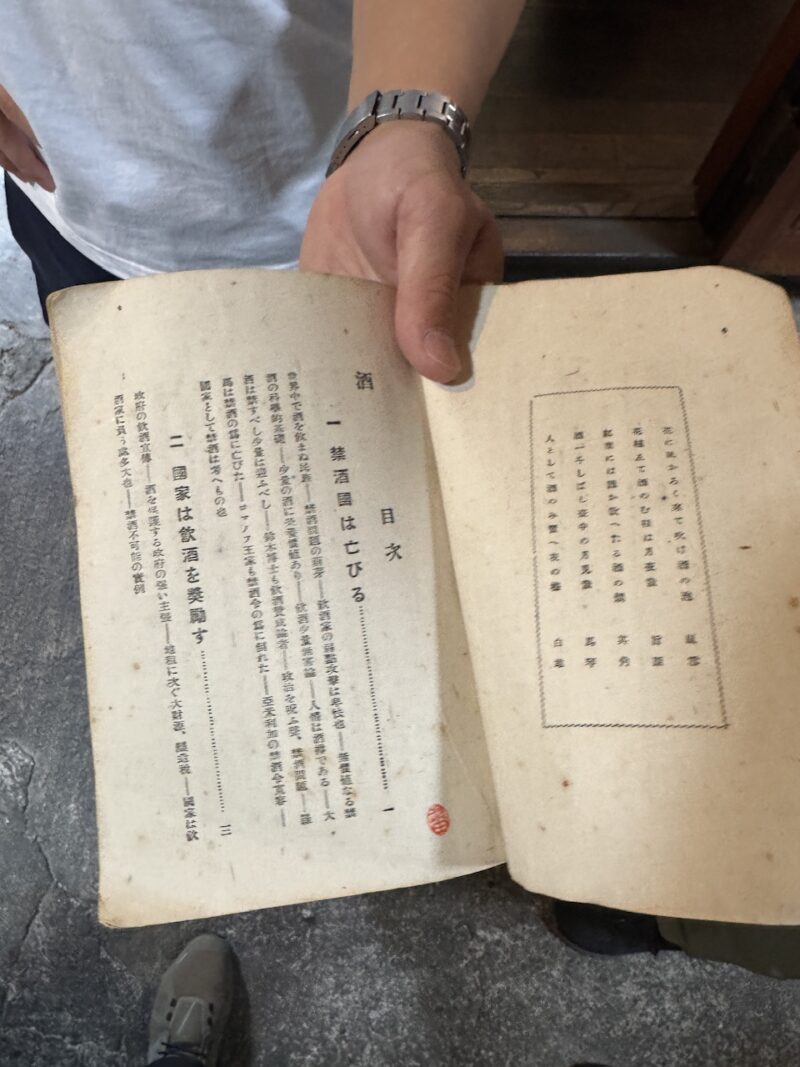 花に風かろく来て吹け酒の泡 嵐雪
酒のむ 月夜哉
紅葉には誰が敎へたる酒の燗 其角
酒一斗しばし壺中の月見哉 馬琴
人として酒のみ習へ夜の 白雄
目次
酒
一 禁酒國は亡びる……………………一
世界中で酒を飲まぬ民族――禁酒問題の萌芽――飲酒家の弱點攻撃は卑怯也――無價値なる禁
酒の科學的基礎――少量の酒に榮養價値あり――飲酒少量無害論――人情は酒 である――大
酒は禁ずべし少量は ぶべし――鈴木博士も飲酒賛成論者――政治を呪ふ聲、禁酒問題――羅
馬は禁酒の爲に亡びた――ロマノフ王家も禁酒令の爲に倒れた――亞米利加の禁酒令實 ――
國家として禁酒は考へもの也
二 國家は飲酒を奬勵す……………………三
政府の飲酒宣傳――酒を保護する政府の强い主張――地租に次ぐ大財源、釀造税――國家は飲
酒家に負ふ處多大也――禁酒不可能の實例